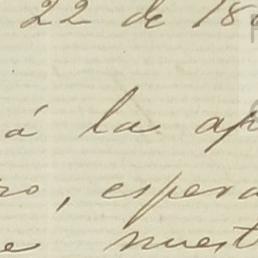 22 de 18
á la ap
ro, espera
e nuest